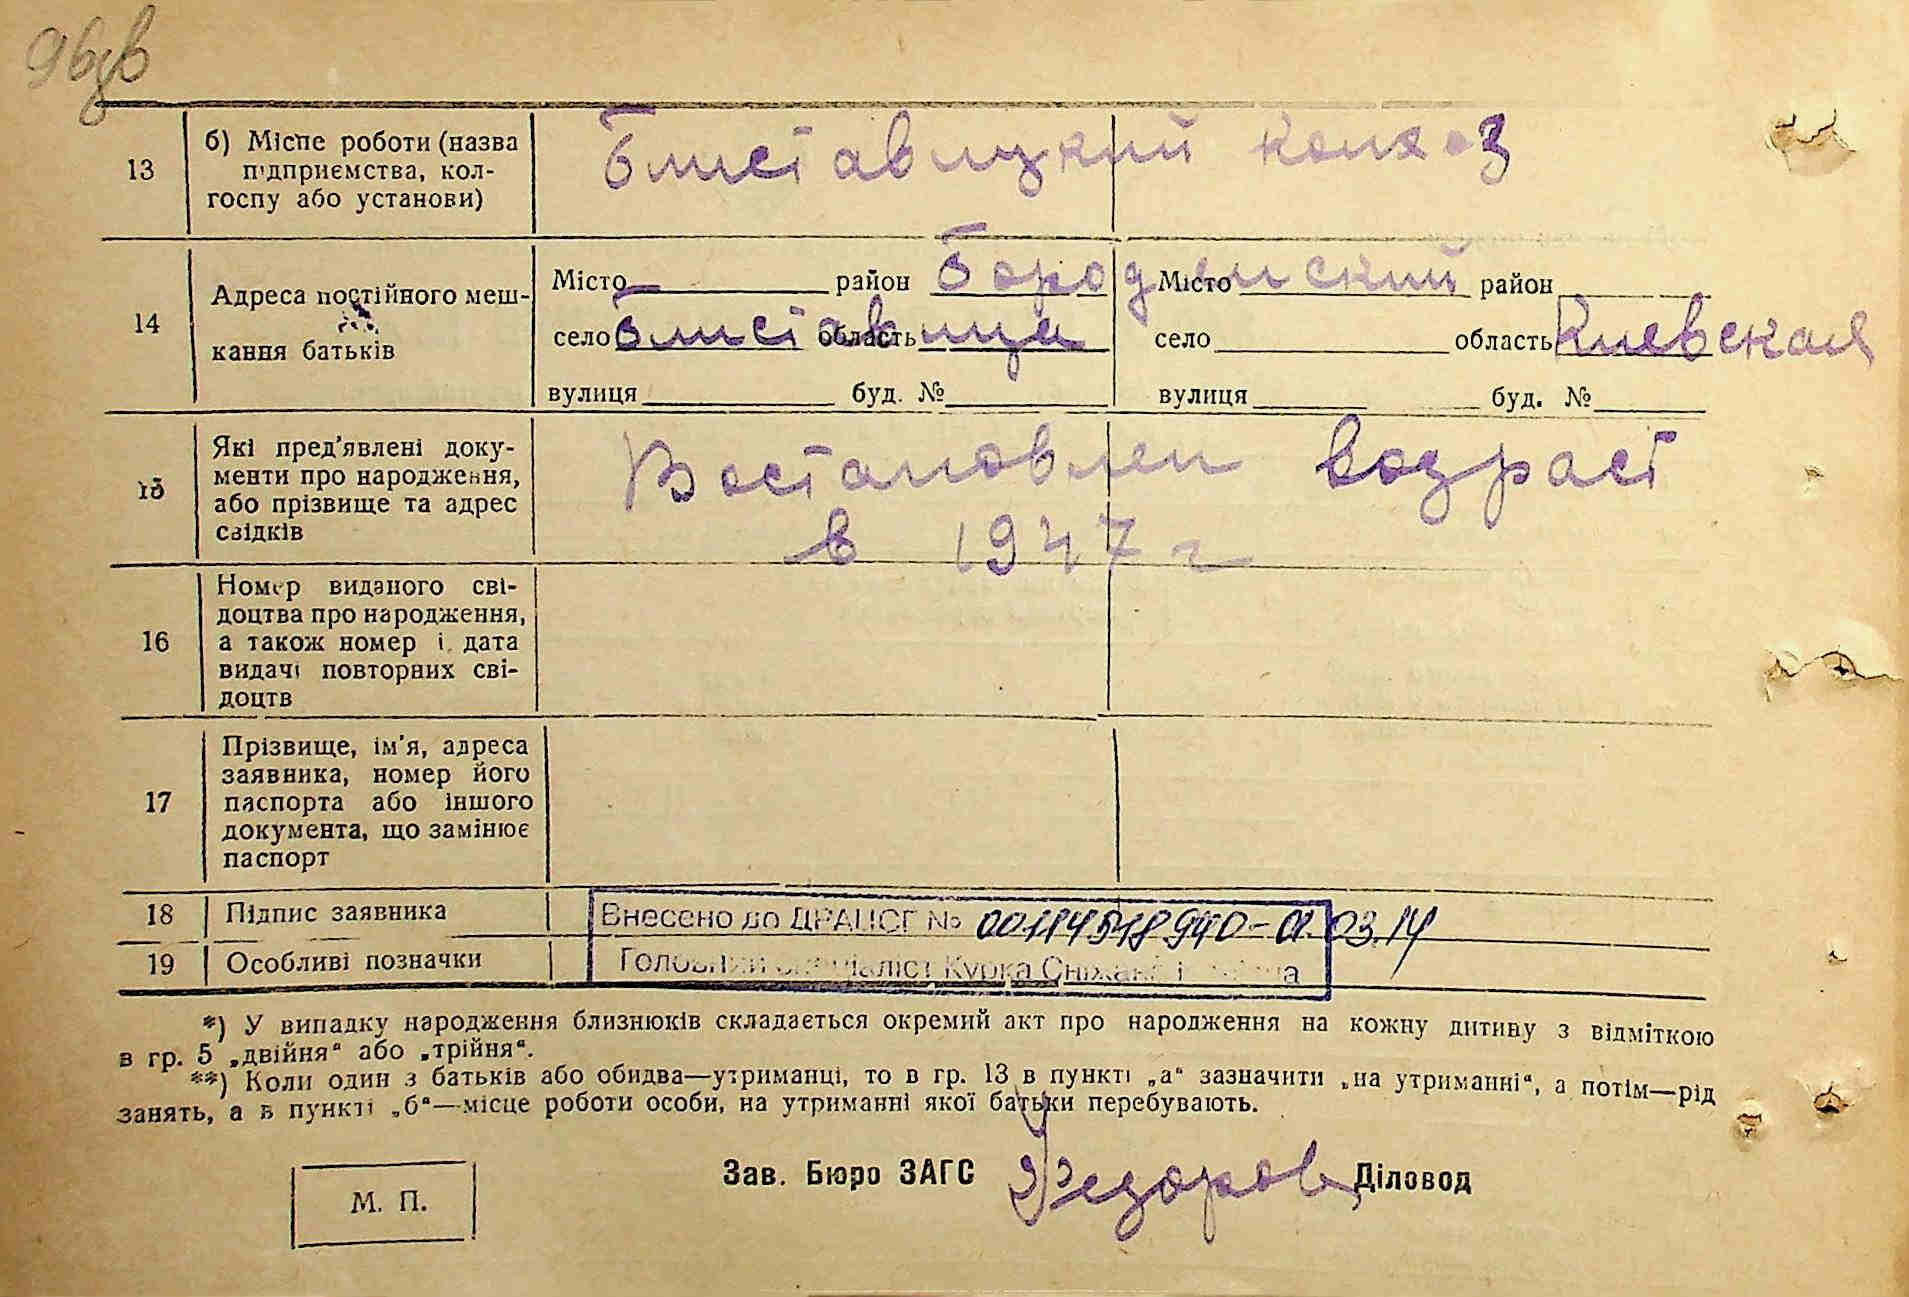 96зв
13 б) Місце роботи (назва підприємства, колгоспу або установи) Блиставицкий колхоз
14 Адреса постійного мешкання батьків
Місто район Бородянский Місто район
село Блиставица область село область Киевская
вулиця буд. № вулиця буд. №
15 Які пред'явлені документи про народження, або прізвище та адрес свідків
Востановлен возраст
в 1947 г
16 Номер виданого свідоцтва про народження, а також номер і дата видачі повторних свідоцтв
17 Прізвище, ім'я, адреса заявника, номер його паспорта або іншого документа, що замінює паспорт
18 Підпис заявника
Внесено до ДРАЦСГ № 00114518940-01.03.14
19 Особливі позначки
Головний спеціаліст Курка Сніжана
*) У випадку народження близнюків складається окремий акт про народження на кожну дитину з відміткою
в гр. 5 „двійня“ або „трійня“.
**) Коли один з батьків або обидва—утриманці, то в гр. 13 в пункті „а“ зазначити „на утриманні“, а потім—рід
занять, а в пункті „б“—місце роботи особи, на утриманні якої батьки перебувають.
Зав. Бюро ЗАГС Федоров Діловод
М. П.